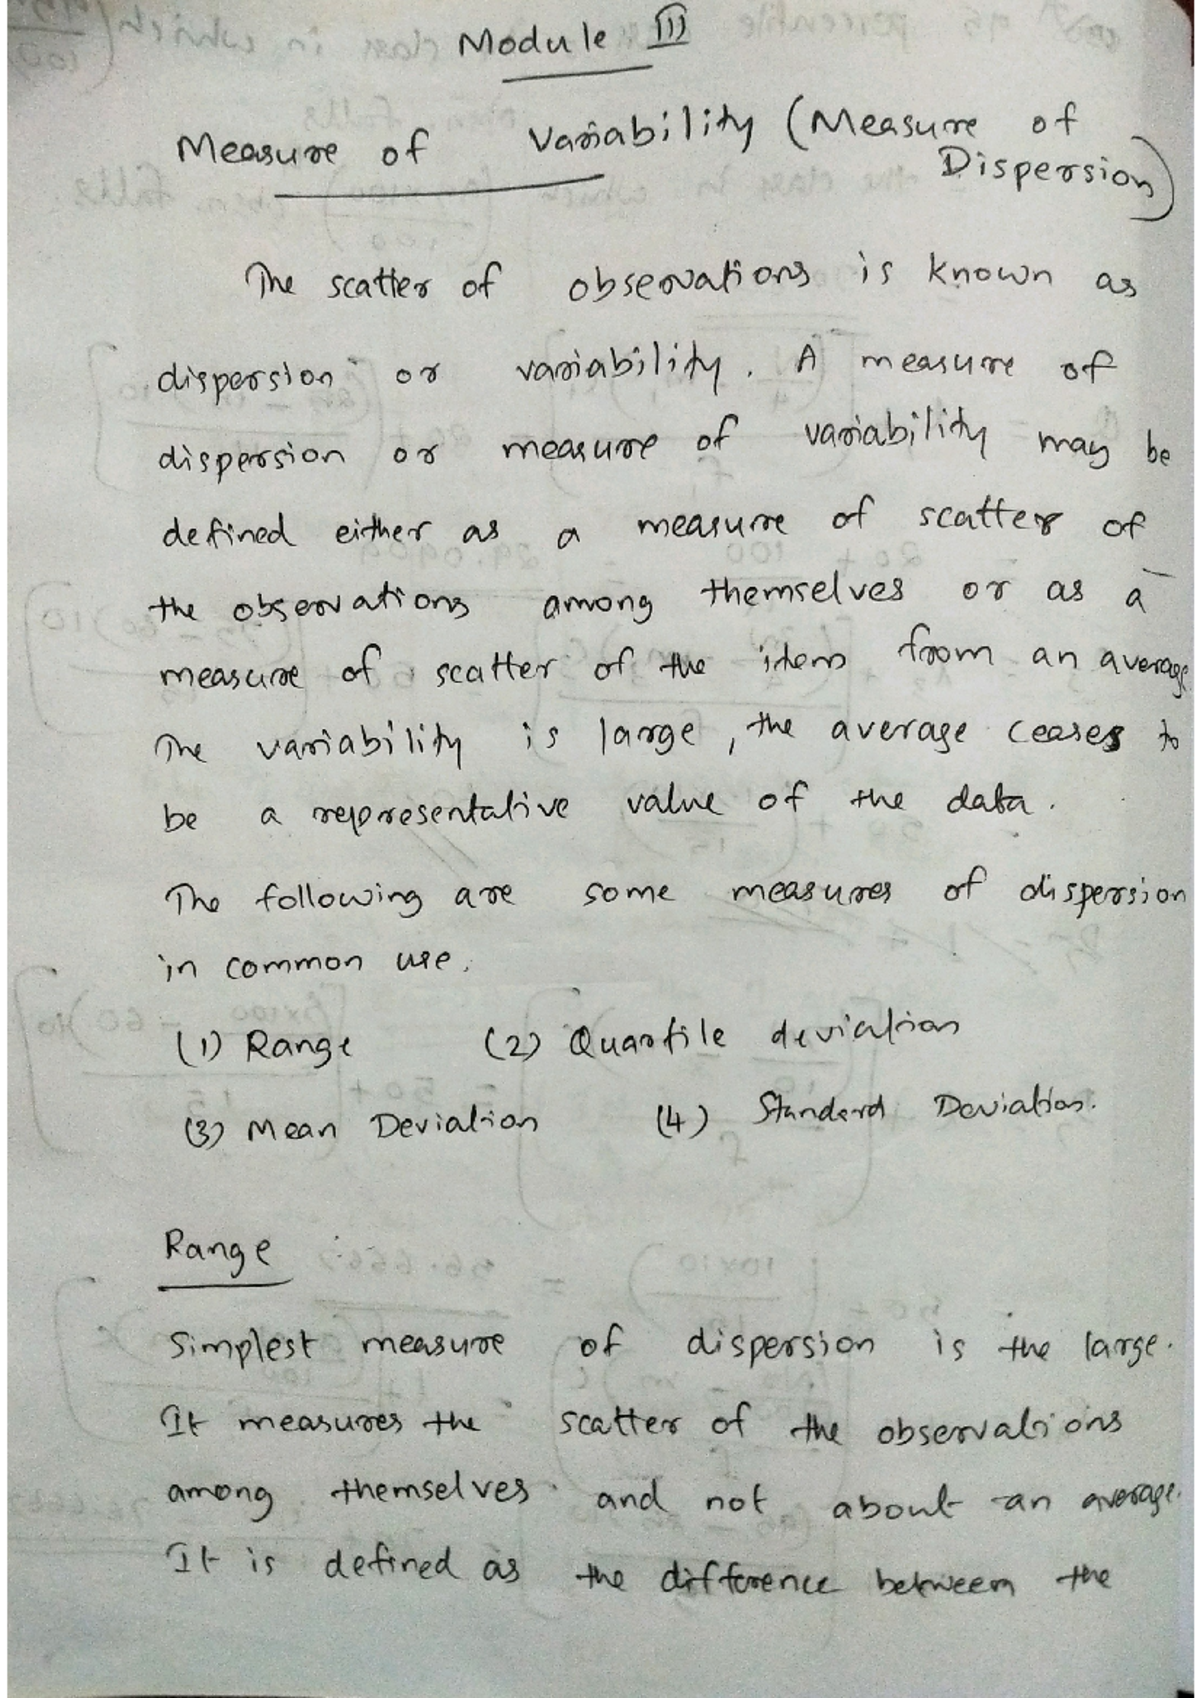 Module III
Measure of Variability (Measure of
Dispersion)
The scatter of observations is known as
dispersion or variability. A measure of
dispersion or measure of variability may be
defined either as a measure of scatter of
the observations among themselves or as a
measure of scatter of the items from an average
The variability is large, the average ceases to
be a representative value of the data.
The following are some measures of dispersion
in common use.
(1) Range (2) Quartile deviation
(3) Mean Deviation (4) Standard Deviation.
Range
Simplest measure of dispersion is the large.
It measures the scatter of the observations
among themselves and not about an average.
It is defined as the difference between the